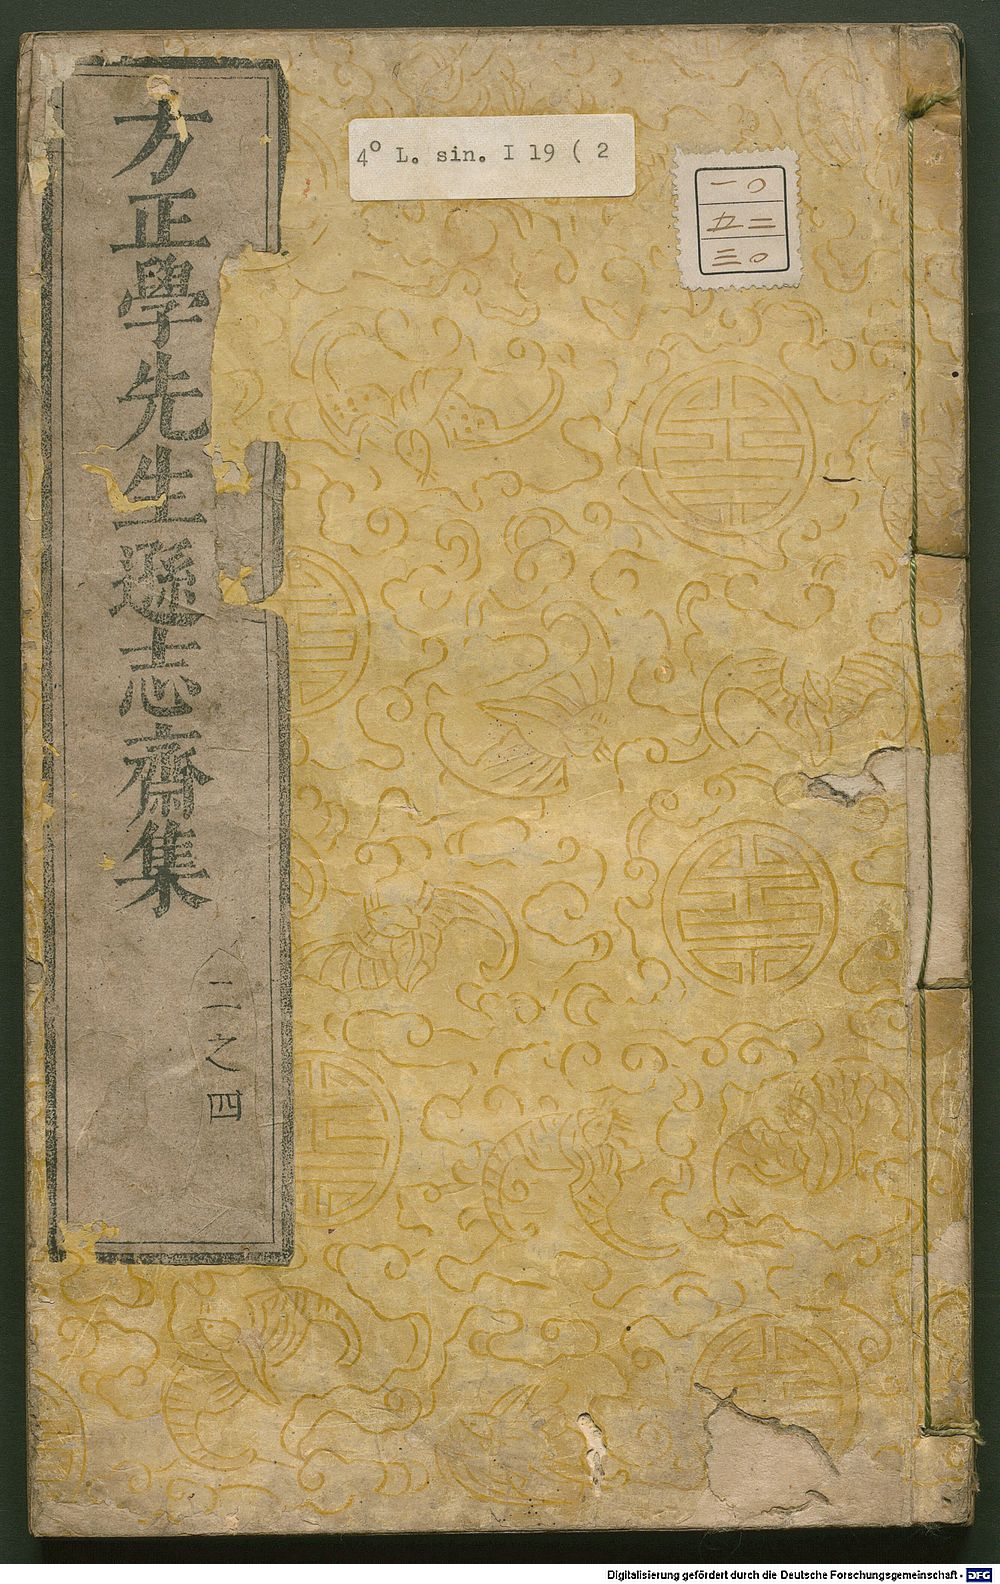 4° L. sin. I 19 ( 2
一〇
五二
三〇
方正學先生遜志齋集
二之四
Digitalisierung gefördert durch die Deutsche Forschungsgemeinschaft - DFG